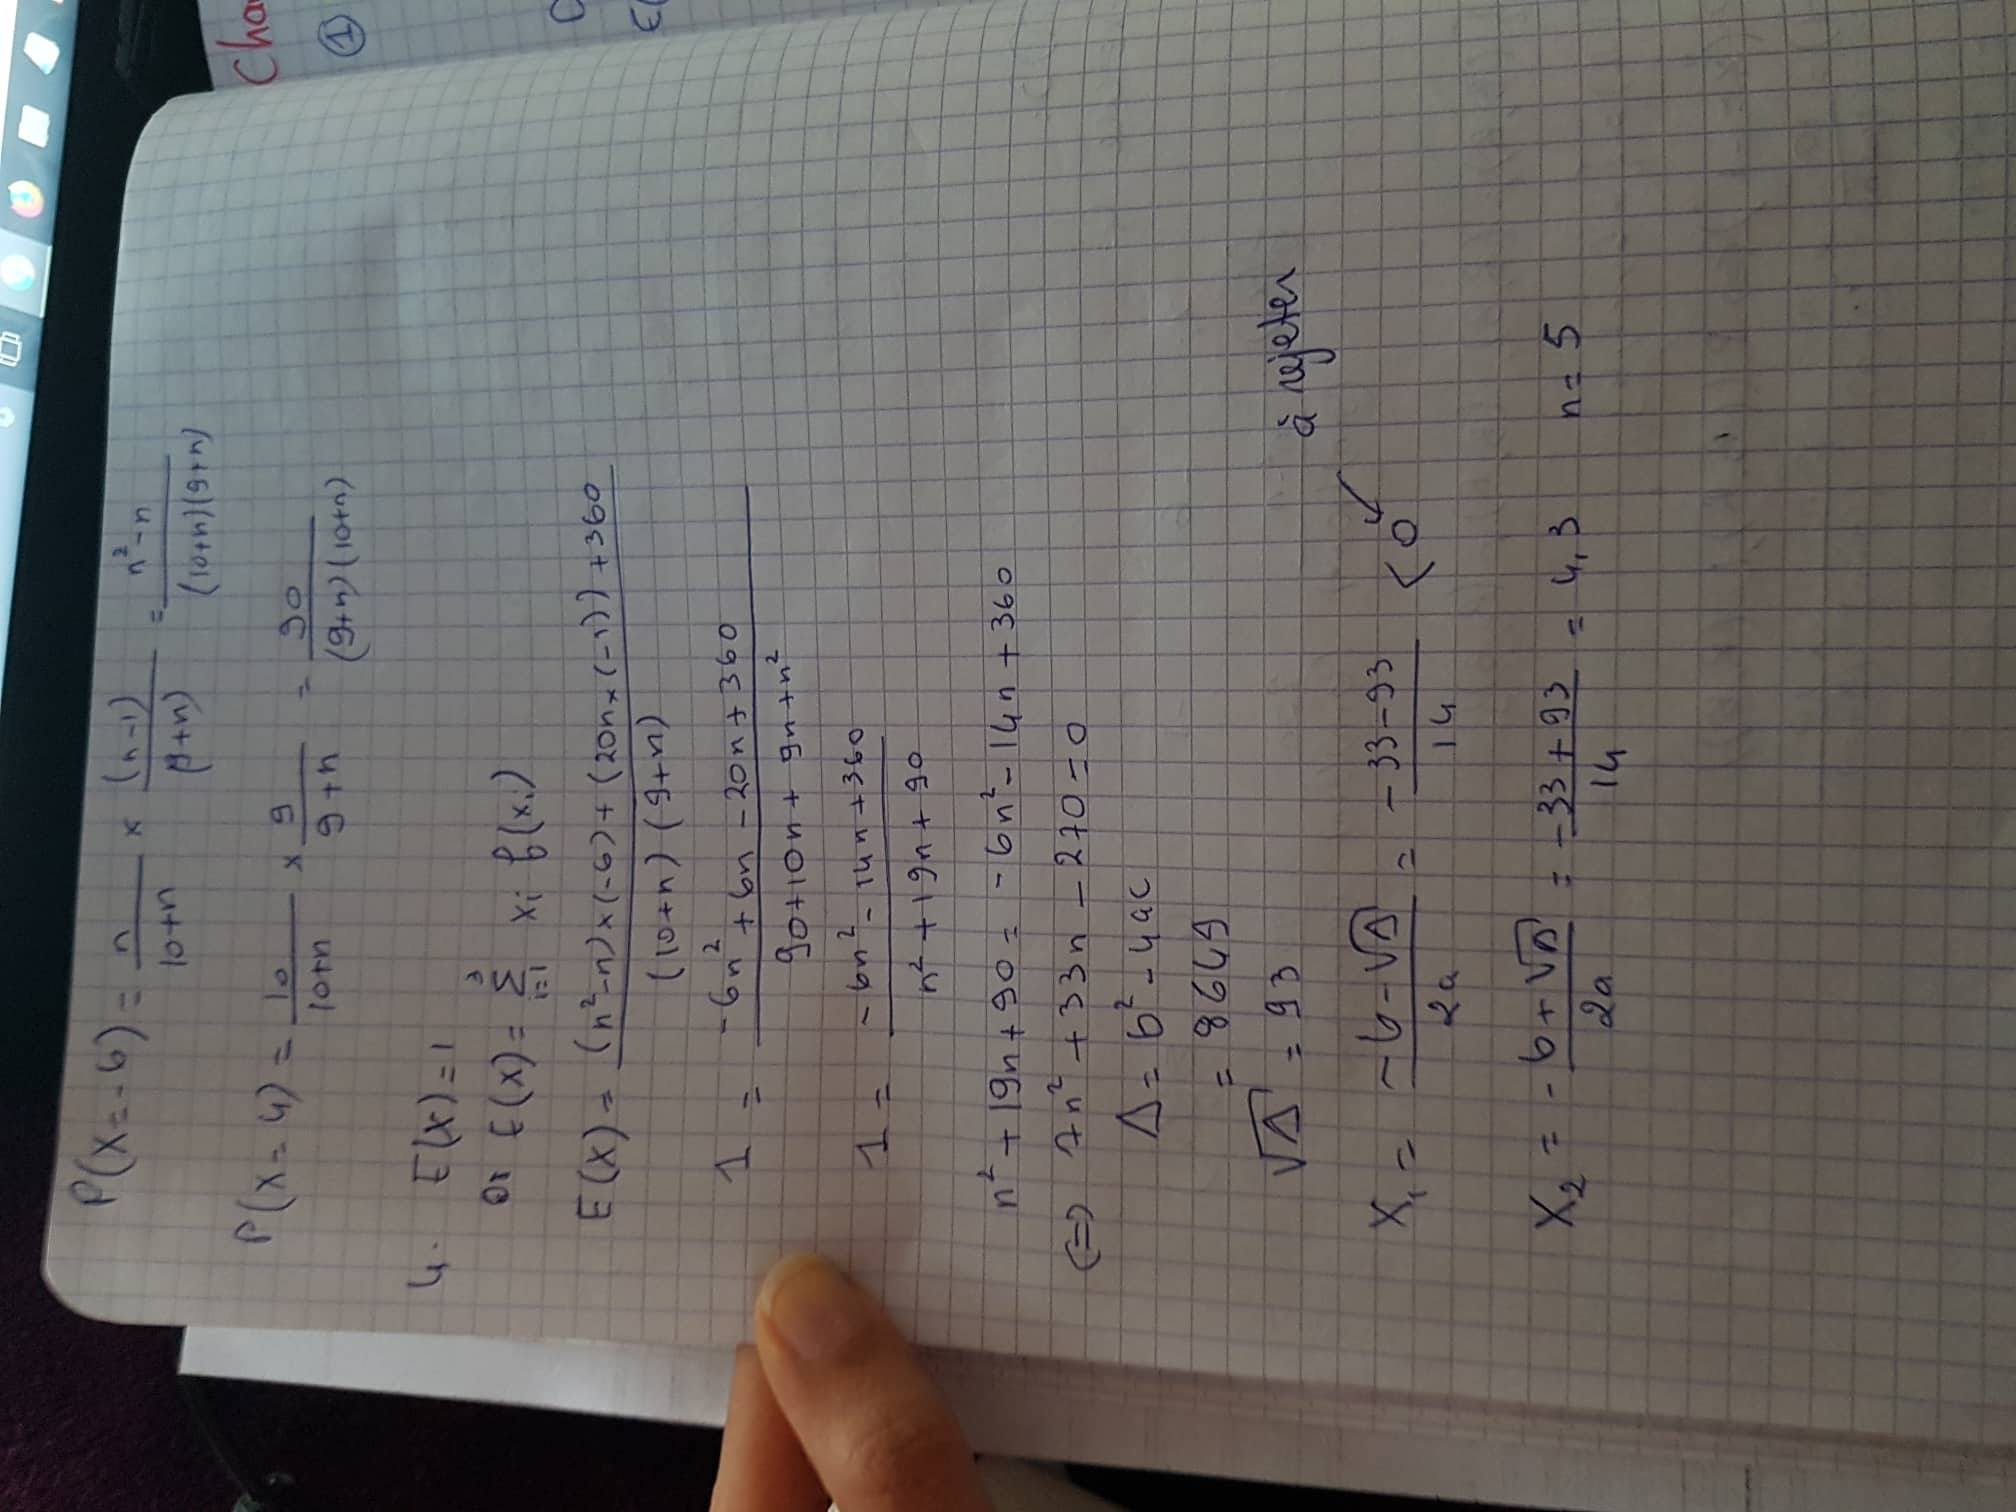 Cha
①
P(X=-6) = n/(10+n) × (n-1)/(9+n) = (n²-n)/((10+n)(9+n))
P(X=4) = 10/(10+n) × 9/(9+n) = 90/((9+n)(10+n))
4. E(X)=1
or E(X) = Σ_{i=1}^{3} xi P(xi)
E(X) = ((n²-n)×(-6)+(20n×(-1))+360)/((10+n)(9+n))
1 = (-6n²+6n-20n+360)/(90+10n+9n+n²)
1 = (-6n²-14n+360)/(n²+19n+90)
n²+19n+90 = -6n²-14n+360
(=) 7n²+33n-270=0
Δ = b²-4ac
= 8649
√Δ = 93
à rejeter
X₁ = (-b-√Δ)/2a = (-33-93)/14 < 0
X₂ = (-b+√Δ)/2a = (-33+93)/14 = 4,3 n=5